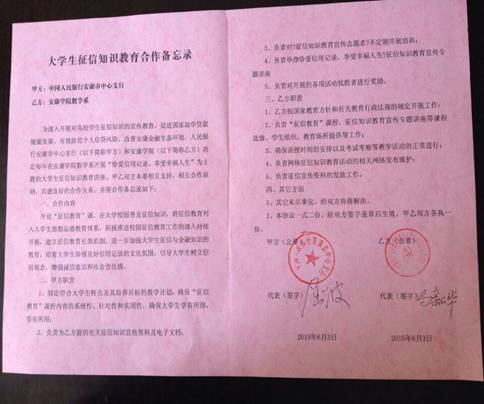 大学生征信知识教育合作备忘录
甲方：中国人民银行安康市中心支行
乙方：安康学院数学系
为深入开展对高校学生征信知识的宣传教育，促进国家助学贷款
健康发展，有效防范个人信贷风险，改善安康金融生态环境，人民银
行安康市中心支行（以下简称甲方）和安康学院（以下简称乙方）决
定每年在安康学院数学系开展“珍爱信用记录，享受幸福人生”为主
题的大学生征信知识教育讲座。甲乙双方本着相互支持，相互合作原
则，共建良好的合作关系，并签合作备忘录如下：
一、合作内容
开设“征信教育”课，在大学校园普及征信知识，将征信教育列
入大学生思想品德教育体系，积极推进校园征信教育工作的深入持续
开展，建立征信教育长效机制，进一步加强大学生征信与金融知识的
教育，培育大学生珍视良好信用记录的文化氛围，引导大学生树立信
用观念，增强诚信意识和社会责任感。
二、甲方职责
1、制定符合大学生特点及其培养目标的教学计划，确保“征信
教育”课程内容的系统性、针对性和实用性，确保大学生学有所得，
学有所用；
2、负责为乙方提供有关征信知识宣传资料及电子文档；
3、负责对“征信知识教育宣传志愿者”不定期开展培训；
4、负责举办“珍爱信用记录，享受幸福人生”征信知识教育宣传专
题讲座
5、负责对开展的各项活动优胜者进行奖励。
三、乙方职责
1、乙方按国家教育方针和有关教育行政法规的规定开展工作；
2、负责“征信教育”课程、征信知识教育宣传专题讲座等课程
选修、学生组织、教育场所提供等工作；
3、确保面授时间的安排以及考试考察等教学活动的正常进行；
4、负责网络征信知识教育活动的相关网络发布维护；
5、负责征信宣传资料的发放工作。
四、其它方面
1、其它未尽事宜，经双方协商解决。
2、本协议一式二份，经双方签字盖章后生效，甲乙双方各执一
份。
甲方（公章） 乙方（公章）
代表（签字） 代表（签字）
2015年6月3日 2015年6月3日